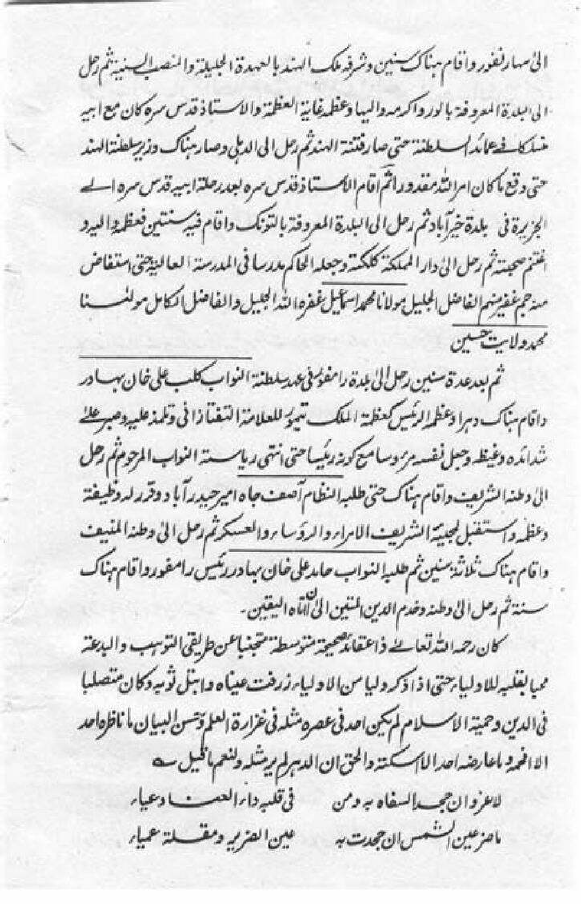 الی سهارنفور واقام هناك سنین وشرفه ملك الهند بالعهدة الجلیلة والمنصب السنیة ثم رحل
الی البلدة المعروفة بالور واکرمه والیها وعظمه غایة العظمة والاستاذ قدس سره کان مع ابیه
منسلکا فی عمائد السلطنة حتی صار فتنة الهند ثم رحل الی الدهلی وصار هناك وزیر سلطنة الهند
حتی وقع ما کان امر الله مقدورا ثم اقام الاستاذ قدس سره بعد رحلة ابیه قدس سره الے
الجزیرة فی بلدة خیرآباد ثم رحل الی البلدة المعروفة بالتونك واقام فیه سنتین فعظمه والیه و
اغتنم صحبته ثم رحل الی دار المملکة کلکته وجعله الحاکم مدرسا فی المدرسة العالیة حتی استفاض
منه جم غفیر منهم الفاضل الجلیل مولانا محمد اسماعیل غفره الله الجلیل والفاضل الکامل مولٰنا
محمد ولایت حسین
ثم بعد عدة سنین رحل الی بلدة رامفور فی عهد سلطنة النواب کلب علی خان بهادر
واقام هناك دهرا وعظمه الرئیس کعظمة الملك تیمور للعلامة التفتازانی وتلمذ علیه وصبر علے
شدائده وغیظه وجعل نفسه مرؤوسا مع کونه رئیسا حتی انتهی ریاسة النواب المرحوم ثم رحل
الی وطنه الشریف واقام هناك حتی طلبه النظام آصف جاه امیر حیدرآباد وقرر له وظیفة
وعظمه واستقبل لمجیئه الشریف الامراء والرؤساء والعسکر ثم رحل الی وطنه المنیف
واقام هناك ثلاثة سنین ثم طلبه النواب حامد علی خان بهادر رئیس رامفور واقام هناك
سنة ثم رحل الی وطنه وخدم الدین المتین الی ان اتاه الیقین۔
کان رحمه الله تعالیٰ ذا عقائد صحیحة متوسطة متجنبا عن طریقی التوهب والبدعة
محبا بقلبه للاولیاء حتی اذا ذکر ولیا من الاولیاء زرفت عیناه وابتل ثوبه وکان متصلبا
فی الدین وحمیة الاسلام لم یکن احد فی عصره مثله فی غزارة العلم وحسن البیان ما ناظره احد
الا افحمه وما عارضه احد الا اسکته والحق ان الدهر لم یر مثله ولنعم ما قیل ؎
لا غرو ان جحد السفاه به ومن فی قلبه داء العناد وعیاء
ما ضر عین الشمس ان جحدت به عین الضریر ومقلة عمیاء